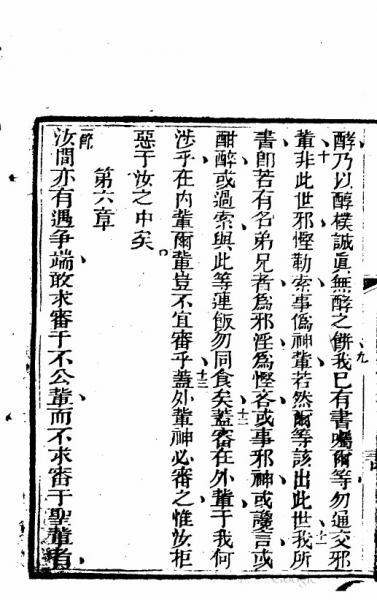 酵乃以醇樸誠眞無酵之餅九我已有書囑爾等勿通交邪
輩十非此世邪慳勒索事偽神輩若然爾等該出此世十一我所
書卽若有名弟兄者爲邪淫爲慳吝或事邪神或讒言或
酣醉或過索與此等連飯勿同食矣十二蓋審在外輩于我何
涉乎在内輩爾輩豈不宜審乎十三蓋外輩神必審之惟汝拒
惡于汝之中矣。
第六章
一節汝間亦有遇爭端敢求審于不公輩而不求審于聖輩者